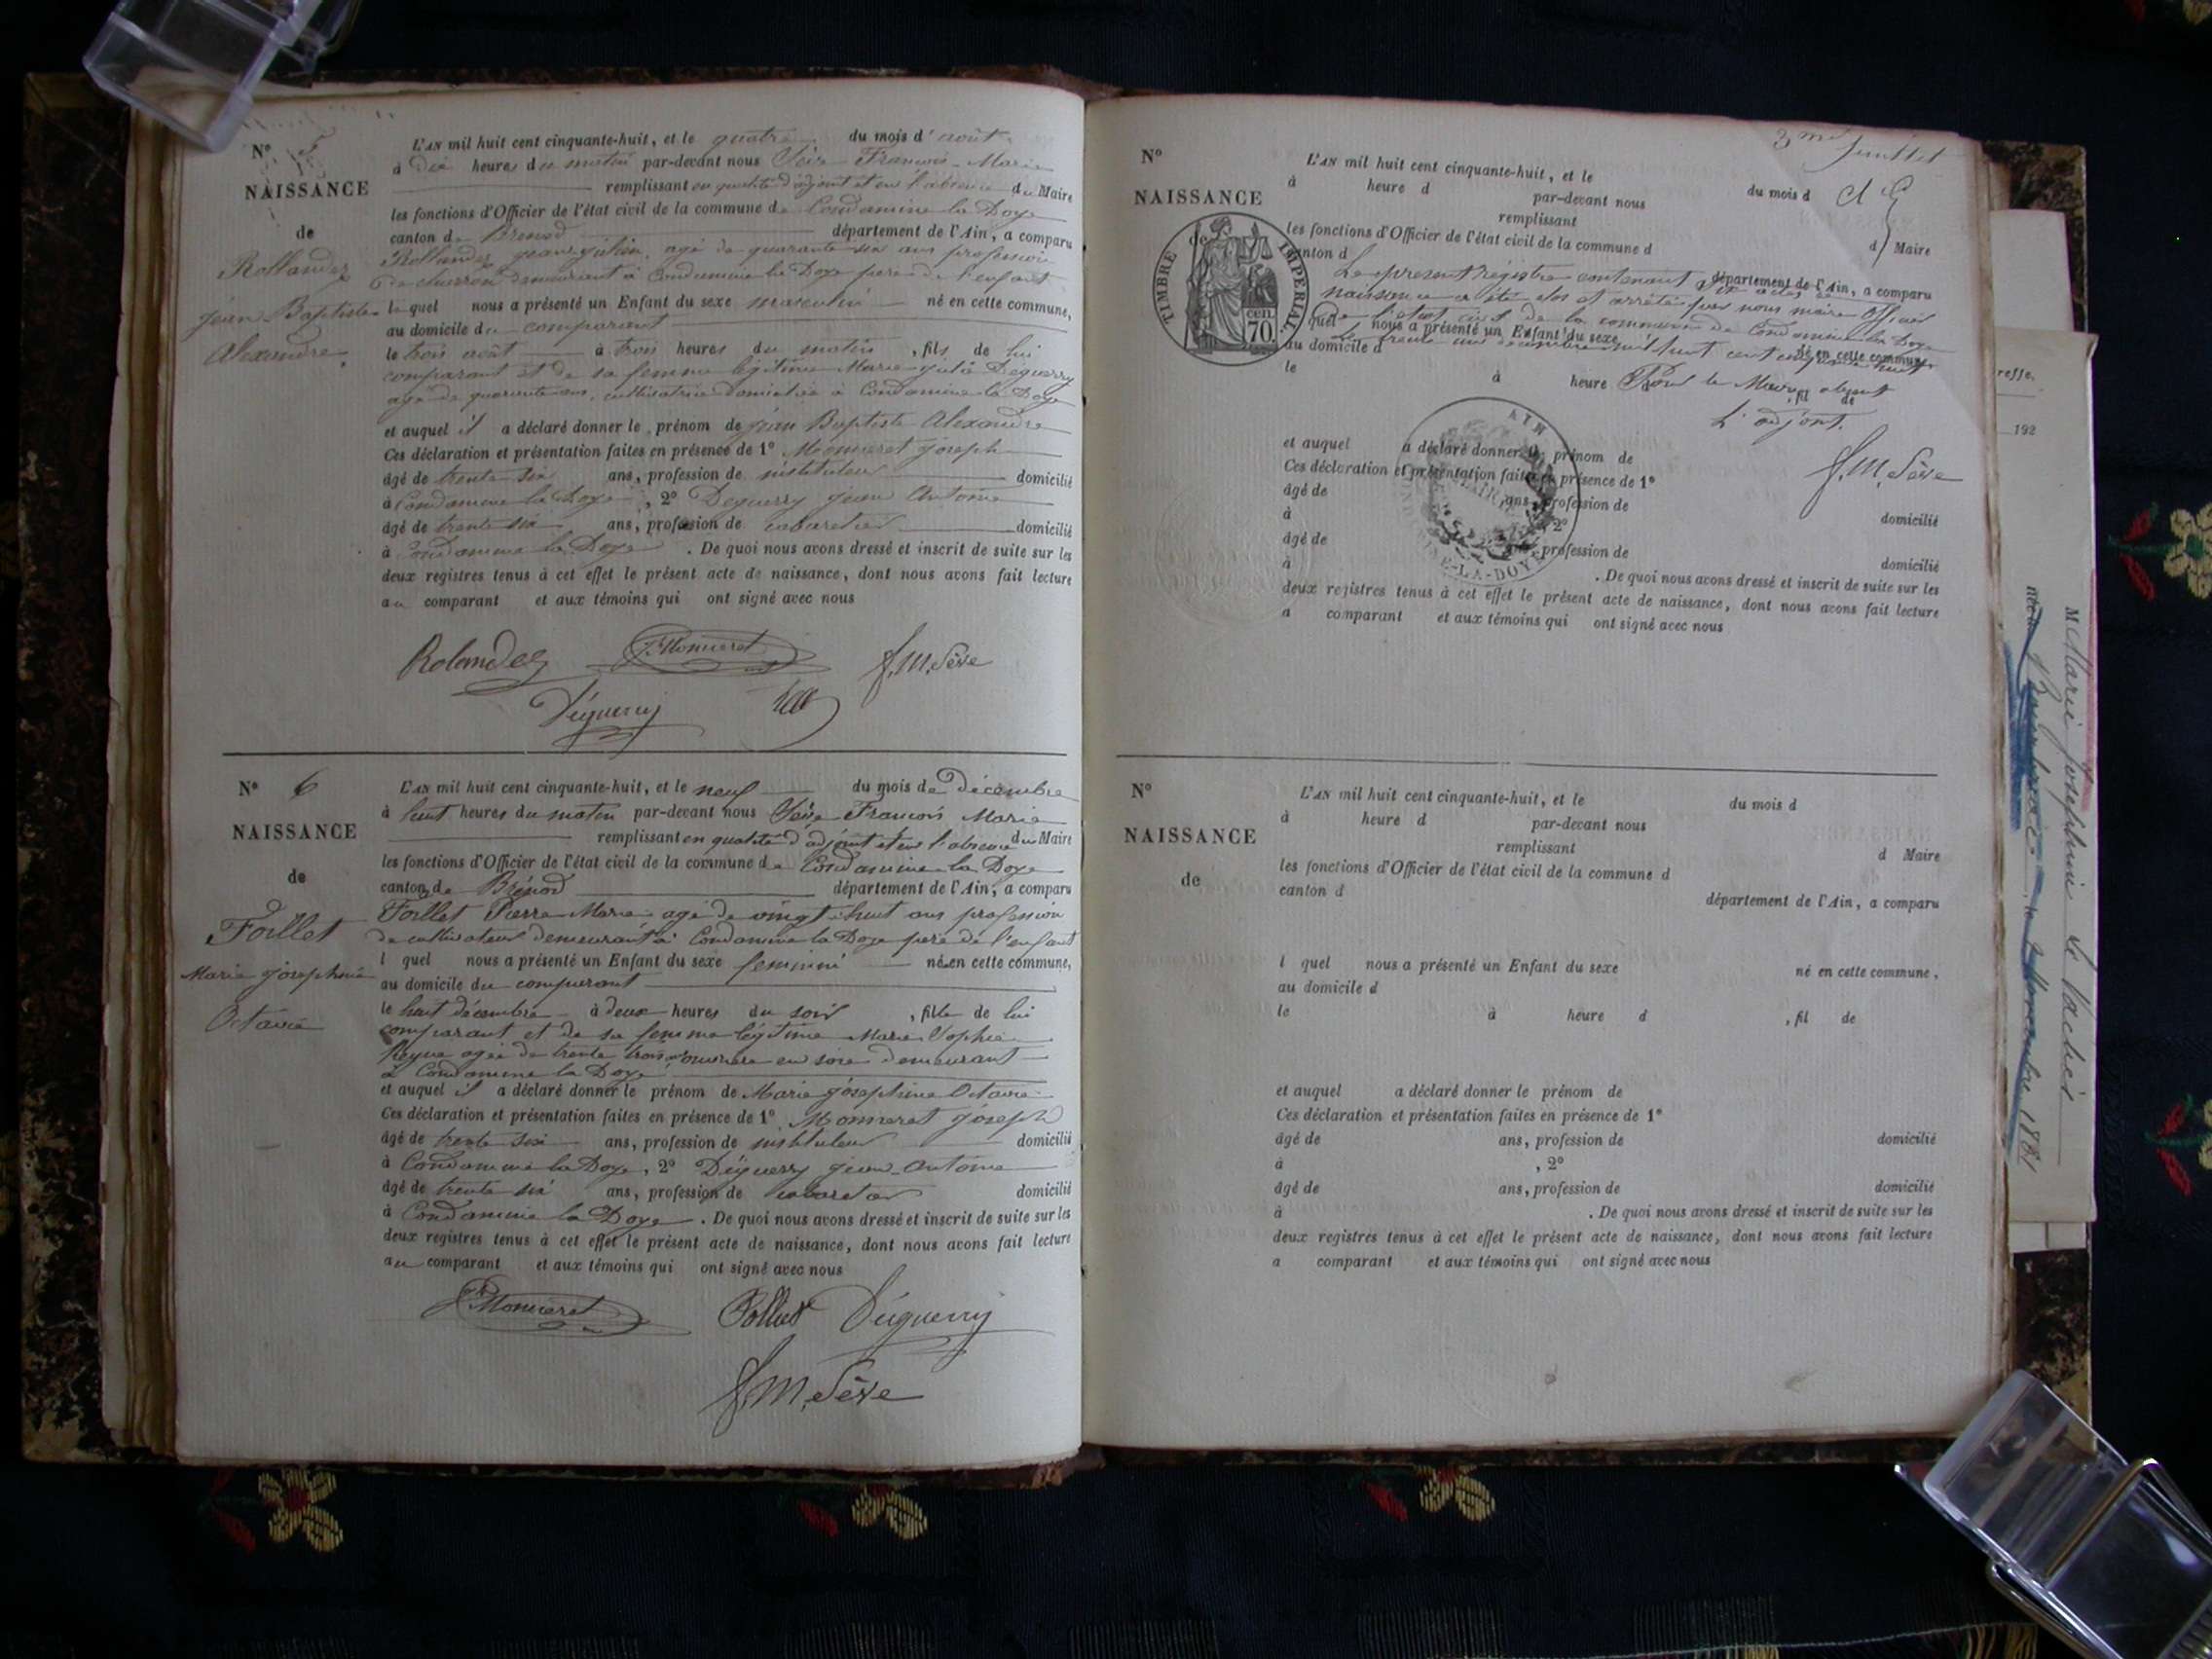 N° 5
NAISSANCE
de
Rollandez
jean Baptiste
Alexandre
L'AN mil huit cent cinquante-huit, et le quatre du mois d'août
à dix heures du matin par-devant nous Sève François-Marie
remplissant en qualité d'adjoint et en l'absence du Maire
les fonctions d'Officier de l'état civil de la commune de Condamine la Doye
canton de Brénod département de l'Ain, a comparu
Rollandez jean julien, agé de quarante six ans profession
de charron demeurant à Condamine la Doye père de l'enfant
lequel nous a présenté un Enfant du sexe masculin né en cette commune,
au domicile du comparant
le trois août à trois heures du matin, fils de lui
comparant et de sa femme légitime Marie Déguerry
agé de quarante ans, cultivatrice domiciliée à Condamine la Doye
et auquel il a déclaré donner le prénom de jean Baptiste Alexandre
Ces déclaration et présentation faites en présence de 1° Monneret joseph
âgé de trente six ans, profession de instituteur domicilié
à Condamine la Doye, 2° Déguerry jean Antoine
âgé de trente six ans, profession de cabaretier domicilié
à Condamine la Doye. De quoi nous avons dressé et inscrit de suite sur les
deux registres tenus à cet effet le présent acte de naissance, dont nous avons fait lecture
au comparant et aux témoins qui ont signé avec nous
Rolandez J. Monneret f. M. Sève
Déguerry
N° 6
NAISSANCE
de
Follet
Marie josephine
Octavie
L'AN mil huit cent cinquante-huit, et le neuf du mois de Décembre
à huit heures du matin par-devant nous Sève François Marie
remplissant en qualité d'adjoint et en l'absence du Maire
les fonctions d'Officier de l'état civil de la commune de Condamine la Doye
canton de Brénod département de l'Ain, a comparu
Follet Pierre Marie agé de vingt-huit ans profession
de cultivateur demeurant à Condamine la Doye père de l'enfant
l quel nous a présenté un Enfant du sexe feminin née en cette commune,
au domicile du comparant
le huit décembre à deux heures du soir, fille de lui
comparant et de sa femme légitime Marie Sophie
agée de trente trois ouvrière en soie demeurant
à Condamine la Doye
et auquel il a déclaré donner le prénom de Marie josephine Octavie
Ces déclaration et présentation faites en présence de 1° Monneret joseph
âgé de trente six ans, profession de instituteur domicilié
à Condamine la Doye, 2° Déguerry jean-Antoine
âgé de trente six ans, profession de cabaretier domicilié
à Condamine la Doye. De quoi nous avons dressé et inscrit de suite sur les
deux registres tenus à cet effet le présent acte de naissance, dont nous avons fait lecture
au comparant et aux témoins qui ont signé avec nous
J. Monneret Follet Déguerry
f. M. Sève
3me feuillet
N°
NAISSANCE
de
TIMBRE IMPERIAL.
70 CEN.
L'AN mil huit cent cinquante-huit, et le du mois d
à heure d par-devant nous
remplissant d Maire
les fonctions d'Officier de l'état civil de la commune d
canton d département de l'Ain, a comparu
Le présent registre contenant six actes de
naissance a été clos et arrêté par nous maire Officier
de l'état civil de la commune de Condamine la Doye
le trente un decembre mil huit cent cinquante huit
quel nous a présenté un Enfant du sexe né en cette commune,
au domicile d
le à heure d, fil de
Pour le Maire absent
L'adjoint.
f. M. Sève
et auquel a déclaré donner le prénom de
Ces déclaration et présentation faites en présence de 1°
âgé de ans, profession de domicilié
à, 2°
âgé de ans, profession de domicilié
à. De quoi nous avons dressé et inscrit de suite sur les
deux registres tenus à cet effet le présent acte de naissance, dont nous avons fait lecture
a comparant et aux témoins qui ont signé avec nous
AIN
LA-DOYE
N°
NAISSANCE
de
L'AN mil huit cent cinquante-huit, et le du mois d
à heure d par-devant nous
remplissant d Maire
les fonctions d'Officier de l'état civil de la commune d
canton d département de l'Ain, a comparu
l quel nous a présenté un Enfant du sexe né en cette commune,
au domicile d
le à heure d, fil de
et auquel a déclaré donner le prénom de
Ces déclaration et présentation faites en présence de 1°
âgé de ans, profession de domicilié
à, 2°
âgé de ans, profession de domicilié
à. De quoi nous avons dressé et inscrit de suite sur les
deux registres tenus à cet effet le présent acte de naissance, dont nous avons fait lecture
a comparant et aux témoins qui ont signé avec nous
192
M Marie Joséphine
Novembre 1881